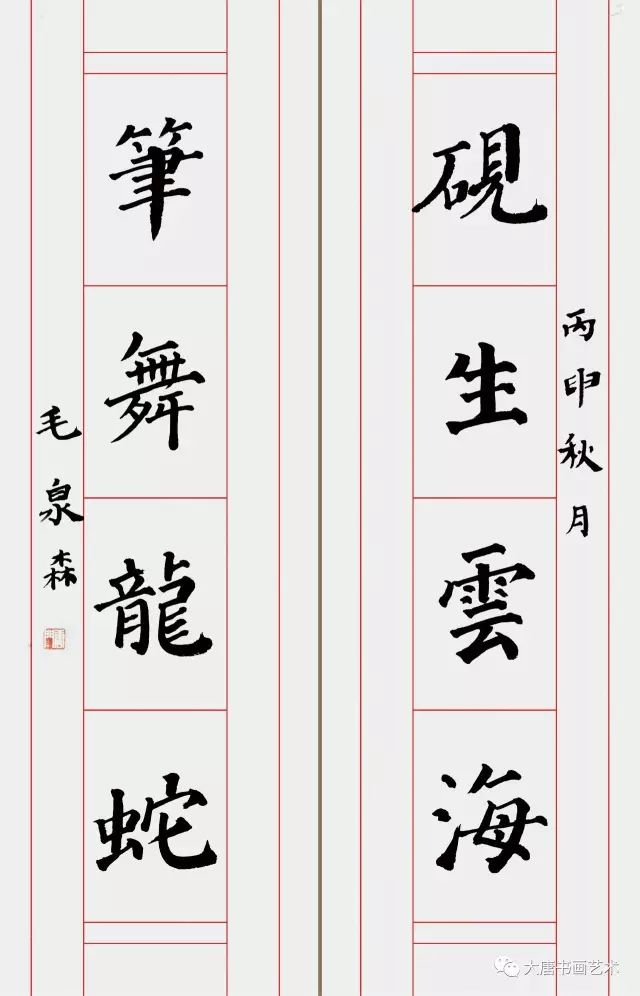 丙申秋月
硯生雲海
筆舞龍蛇
毛泉森
大唐书画艺术